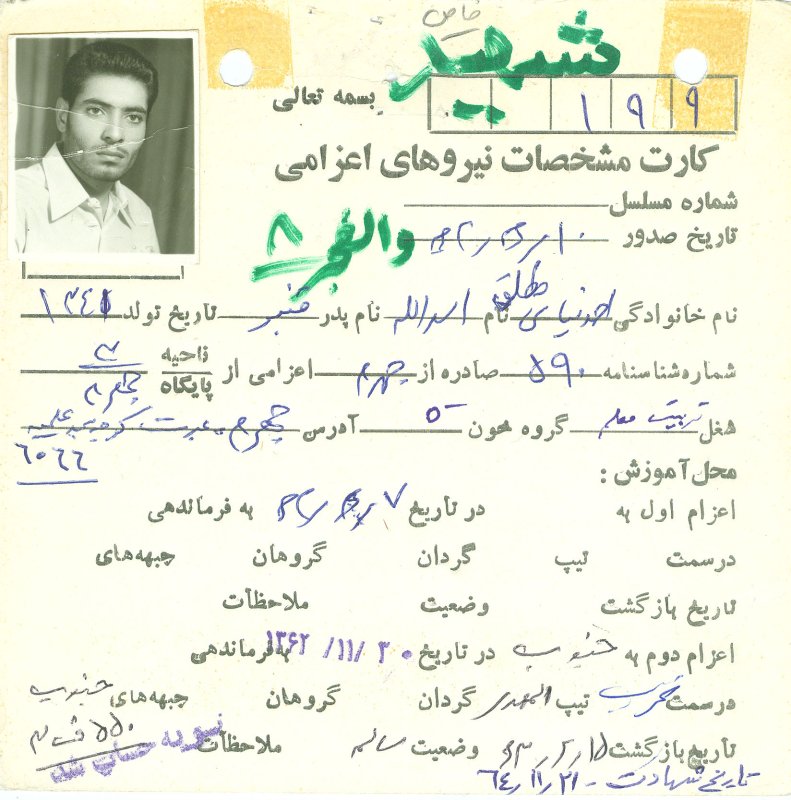 خاص
شهید
بسمه تعالی
۱۹۹
کارت مشخصات نیروهای اعزامی
شماره مسلسل
تاریخ صدور
والفجر ۸
نام خانوادگی مطلق نام اسدالله نام پدر قنبر تاریخ تولد ۱۳۴۱
شماره شناسنامه ۵۹۰ صادره از جهرم اعزامی از ناحیه پایگاه جهرم
شغل تربیت معلم گروه خون O آدرس جهرم
۶۰۶۶
محل آموزش :
اعزام اول به در تاریخ به فرماندهی
درسمت تیپ گردان گروهان جبهه‌های
تاریخ بازگشت وضعیت ملاحظات
اعزام دوم به جنوب در تاریخ ۱۳۶۲/۱۱/۲۰ به فرماندهی
درسمت تیپ المهدی گردان گروهان جبهه‌های جنوب
تاریخ بازگشت وضعیت سالم ملاحظات
تسویه حساب شد
تاریخ شهادت - ۶۴/۱۱/۲۱